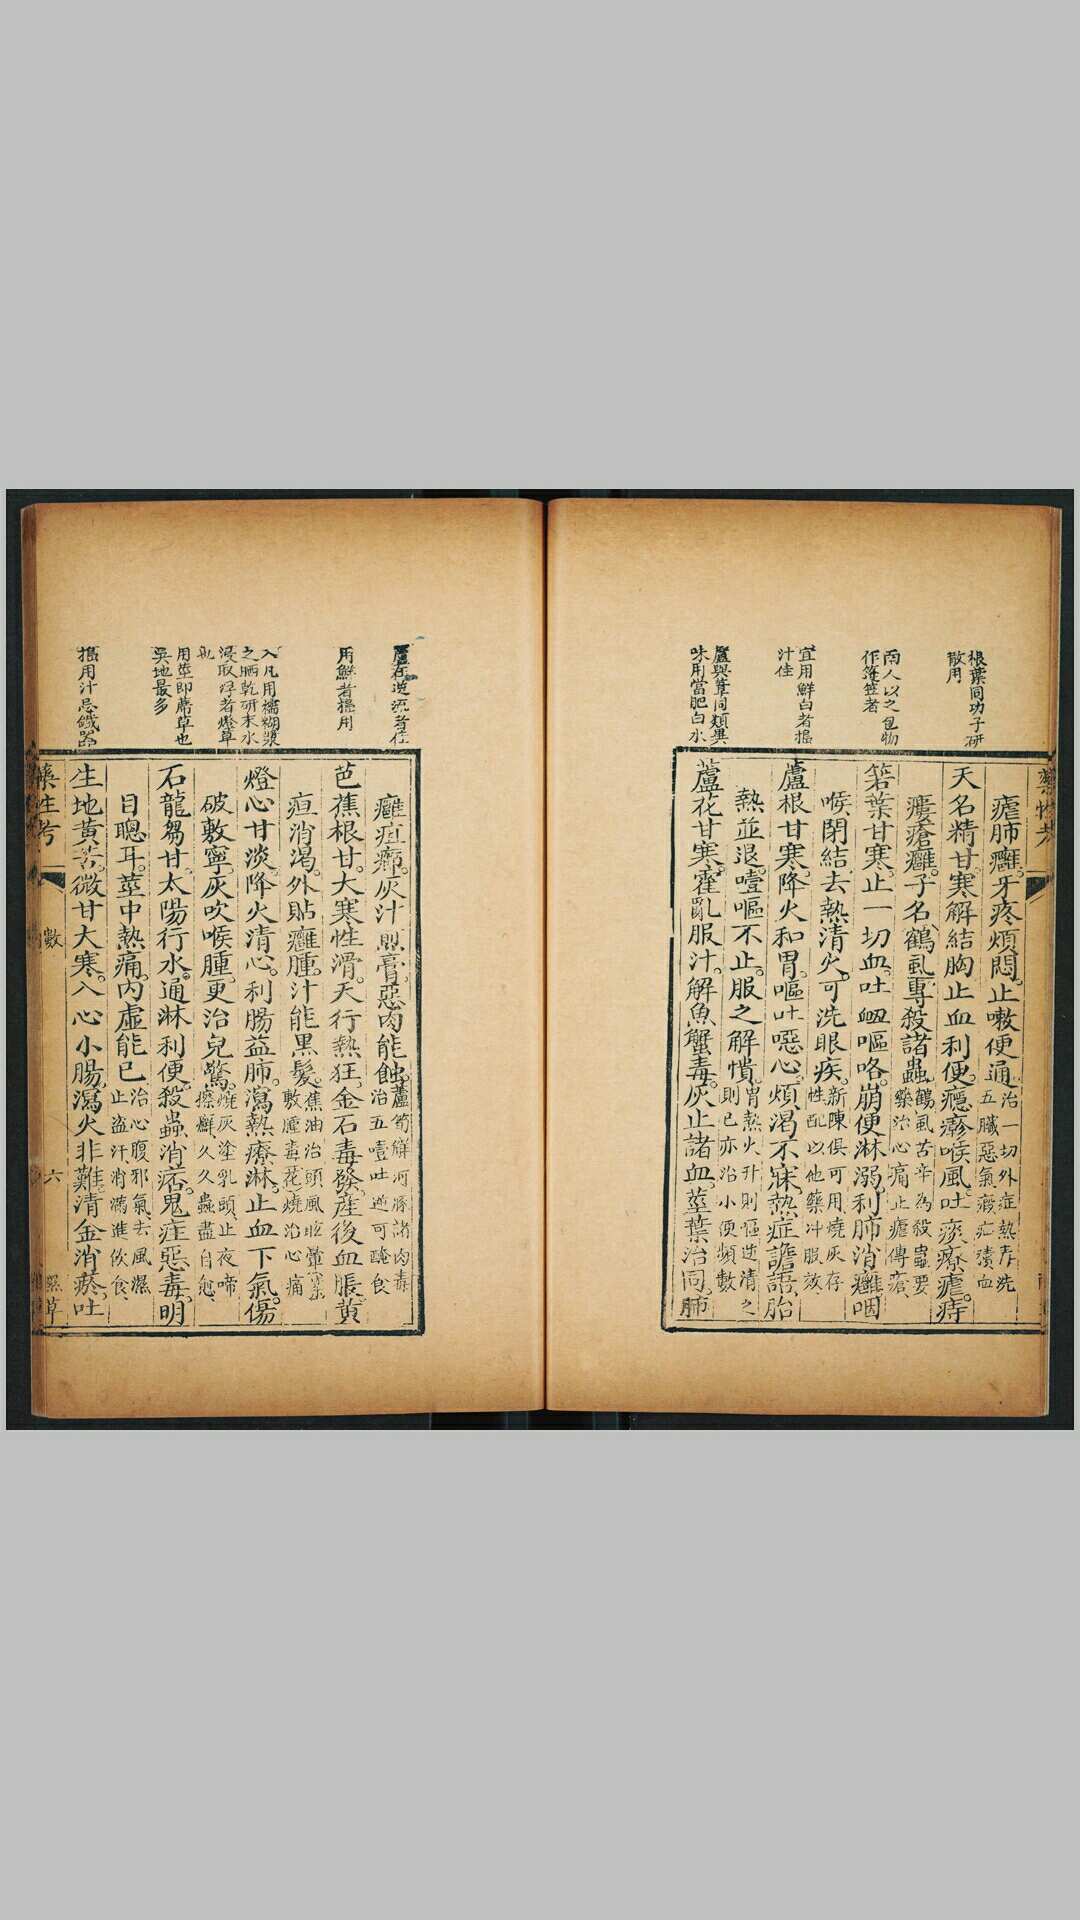 根葉同功子研
散用
南人以之包物
作篷笠者
宜用鮮白者搗
汁佳
蘆與葦同類異
味用當肥白水
瘧肺癰牙疼煩悶止嗽便通治一切外症熱痒洗
五臟惡氣癥疝積血
天名精甘寒解結胸止血利便癮疹喉風吐痰療瘧痔
瘻瘡癰子名鶴虱專殺諸蟲鶴虱苦辛為殺蟲要
藥治心痛止瘧傳瘡
箬葉甘寒止一切血吐衂嘔咯崩便淋溺利肺消癰咽
喉閉結去熱清火可洗眼疾新陳俱可用燒灰存
性配以他藥冲服敖
蘆根甘寒降火和胃嘔吐噁心煩渴不寐熱症譫語胎
熱並退噎嘔不止服之解憒胃熱火升則嘔逆清之
則已亦治小便頻數
蘆花甘寒霍亂服汁解魚蟹毒灰止諸血莖葉治同肺
藥性考
蘆在逆流者佳
用鮮者搗用
入凡用糯糊漿
之晒乾研末水
浸取浮者燈草
也
用莖即蓆草也
吳地最多
搗用汁忌鐵器
癰疽痹灰汁煎膏惡肉能蝕蘆筍解河豚諸肉毒
治五噎吐逆可醃食
芭蕉根甘大寒性滑天行熱狂金石毒發産後血脹黄
疸消渴外貼癰腫汁能黒髪蕉油治頭風眩暈
敷腫毒花燒治心痛
燈心甘淡降火清心利腸益肺瀉熱療淋止血下氣傷
破敷寧灰吹喉腫更治兒驚燒灰塗乳頭止夜啼
擦癬久久蟲盡自愈
石龍芻甘太陽行水通淋利便殺蟲消痞鬼疰惡毒明
目聰耳莖中熱痛内虛能已治心腹邪氣去風濕
止盗汗消滿進飲食
生地黄苦微甘大寒入心小腸瀉火非難清金消瘀吐
藥性考
數
六
隰草